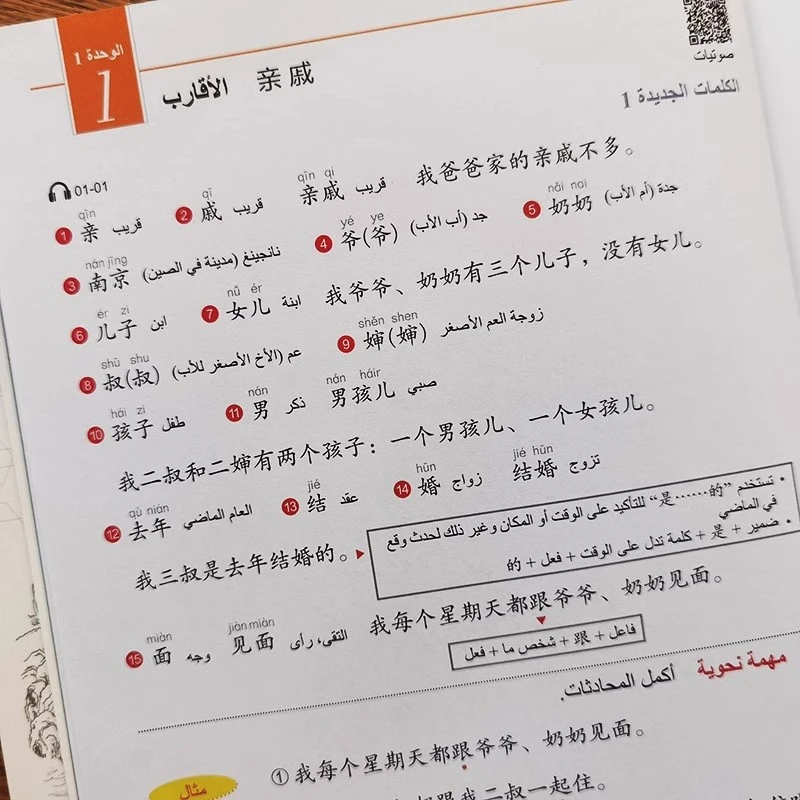 الوحدة 1
1
الأقارب 亲戚
صوتيات
الكلمات الجديدة 1
01-01
qīn qī qīn qi
1 亲 قريب 2 戚 قريب 亲戚 قريب 我爸爸家的亲戚不多。
nánjīng yé ye nǎi nai
3 南京 نانجينغ (مدينة في الصين) 4 爷(爷) جد (أب الأب) 5 奶奶 جدة (أم الأب)
ér zi nǚ ér
6 儿子 ابن 7 女儿 ابنة 我爷爷、奶奶有三个儿子，没有女儿。
shū shu shěn shen
8 叔(叔) عم (الأخ الأصغر للأب) 9 婶(婶) زوجة العم الأصغر
hái zi nán nán háir
10 孩子 طفل 11 男 ذكر 男孩儿 صبي
我二叔和二婶有两个孩子：一个男孩儿、一个女孩儿。
qù nián jié hūn jié hūn
12 去年 العام الماضي 13 结 عقد 14 婚 زواج 结婚 تزوج
我三叔是去年结婚的。
• تستخدم "是……的" للتأكيد على الوقت أو المكان وغير ذلك لحدث وقع
في الماضي
• ضمير + 是 + كلمة تدل على الوقت + فعل + 的
miàn jiàn miàn
15 面 وجه 见面 التقى، رأى 我每个星期天都跟爷爷、奶奶见面。
فاعل + 跟 + شخص ما + فعل
مهمة نحوية أكمل المحادثات.
مثال
① 我每个星期天都跟爷爷、奶奶见面。
跟我二叔一起住。